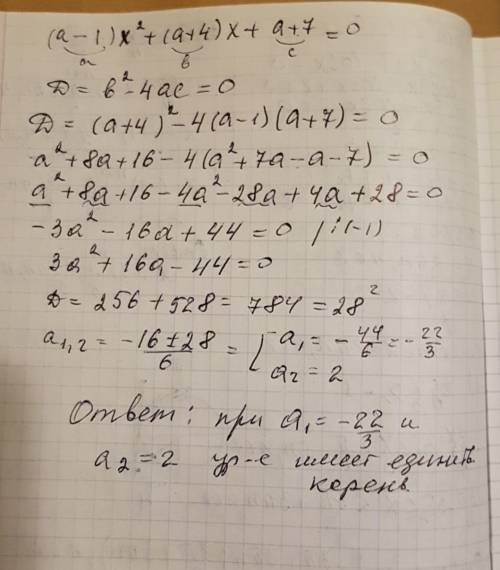 (a-1)x²+(a+4)x+a+7=0
a в c
D = в²-4ac=0
D = (a+4)²-4(a-1)(a+7)=0
a²+8a+16-4(a²+7a-a-7)=0
a²+8a+16-4a²-28a+4a+28=0
-3a²-16a+44=0 /:(-1)
3a²+16a-44=0
D = 256+528=784=28²
a₁,₂ = -16±28/6 = [ a₁=-44/6=-22/3
a₂=2
Ответ: при a₁=-22/3 и
a₂=2 ур-е имеет единств.
корень